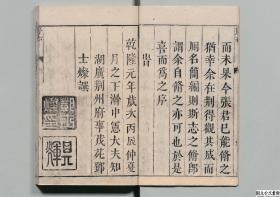 而未果今張君已能脩之
猶幸余在荆得觀其成而
名簡編則斯志之脩即
謂余自脩之亦可也於是
喜而爲之序
旹
乾隆元年歲次丙辰仲夏
月之下澣中憲大夫知
湖廣荆州府事茂苑
士燦譔